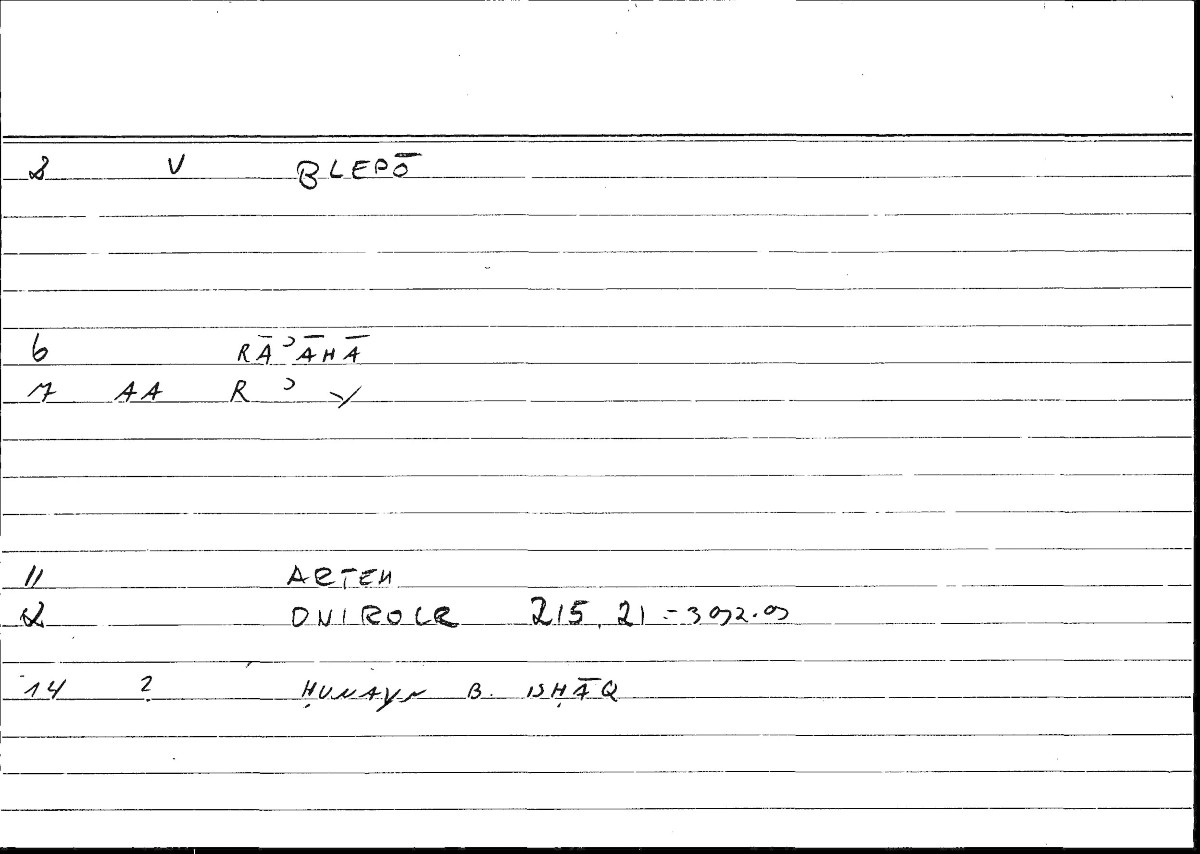 2 V BLEPŌ
6 RĀʾĀHĀ
7 AA R ʾ Y
11 ARTEM
12 ONIROCR 215, 21 = 392.9
14 ? ḤUNAYN B. ISḤĀQ